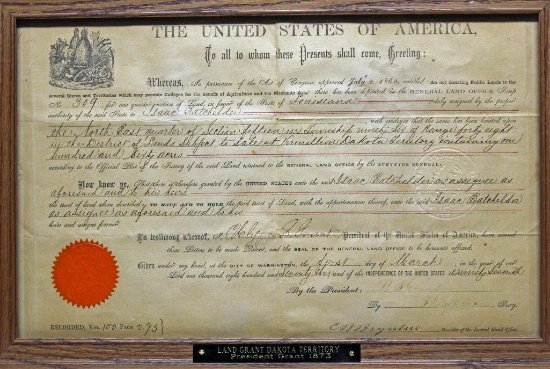 THE UNITED STATES OF AMERICA,
To all to whom these Presents shall come, Greeting:
Whereas, In pursuance of the Act of Congress, approved July 2, 1862, entitled An Act donating Public Lands to the
several States and Territories which may provide Colleges for the benefit of Agriculture and the Mechanic Arts there has been deposited in the GENERAL LAND OFFICE Scrip
No 309 for one quarter section of Land, in favor of the State of Louisiana duly assigned by the proper
authority of the said State to Isaac Batchelder
with evidence that the same has been located upon
the North East quarter of Section fifteen in township ninety six of Range forty eight
in the District of Lands Subject to Sale at Vermillion Dakota Territory containing one
hundred and sixty acres
according to the Official Plat of the Survey of the said Land returned to the GENERAL LAND OFFICE by the SURVEYOR GENERAL:
Now know ye, That there is therefore granted by the UNITED STATES unto the said Isaac Batchelder as assignee as
aforesaid and to his heirs
the tract of Land above described; TO HAVE AND TO HOLD the said tract of Land, with the appurtenances thereof, unto the said Isaac Batchelder
as assignee as aforesaid and to his
heirs and assigns forever.
In testimony whereof, I, Ulysses S. Grant, President of the United States of America,
have caused these Letters to be made Patent, and the SEAL OF THE GENERAL LAND OFFICE to be hereunto affixed.
Given under my hand, at the CITY OF WASHINGTON, the first day of March, in the year of our
Lord one thousand eight hundred and seventy and of the INDEPENDENCE OF THE UNITED STATES the ninety seventh
By the President:
By Secy.
RECORDED, Vol. 100 Page 295 Recorder of the General Land Office.
LAND GRANT DAKOTA TERRITORY
President Grant 1873